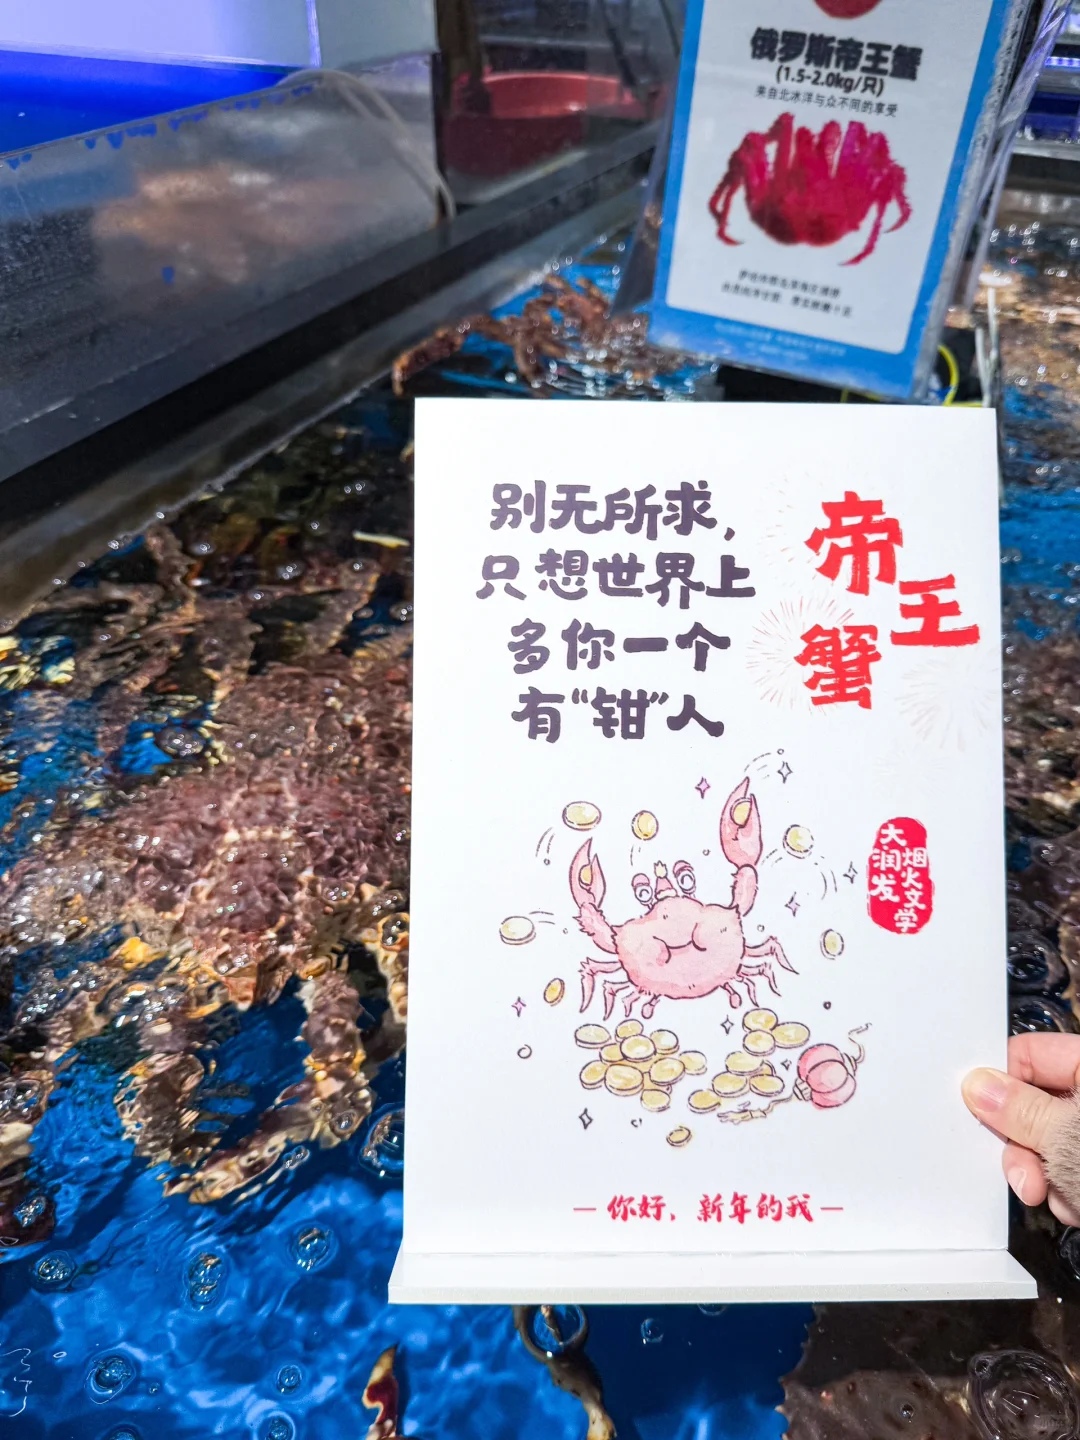 俄罗斯帝王蟹
(1.5-2.0kg/只)
来自北冰洋与众不同的享受
别无所求，
只想世界上
多你一个
有“钳”人
帝王蟹
大润发
烟火文学
— 你好，新年的我 —